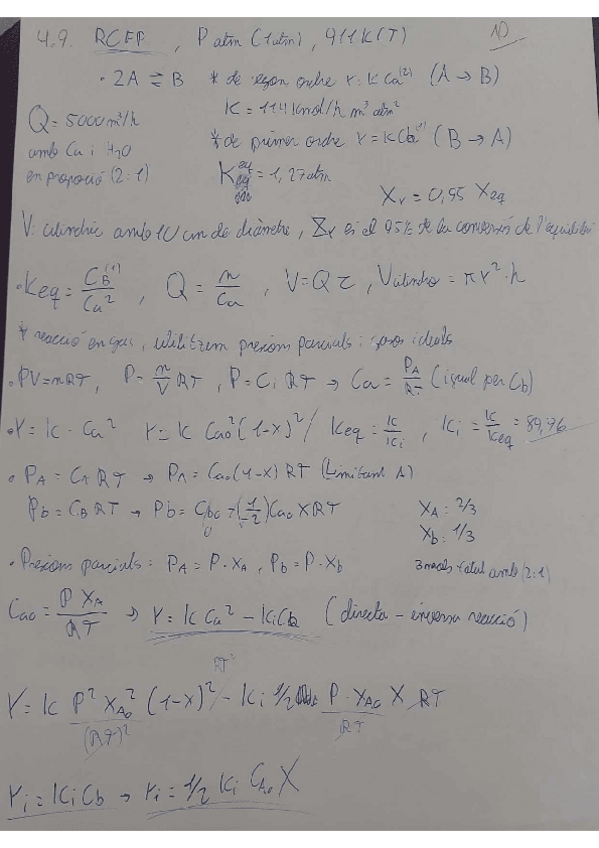 4.9. RCFP, P atm (1atm), 911K(T)
10
· 2A ⇄ B * de segon ordre r: K Ca⁽²⁾ (A → B)
Q = 5000 m³/h K = 114 Kmol/h m³ atm²
amb Ca i H₂O * de primer ordre r = K Cb⁽¹⁾ (B → A)
en proporció (2:1) K eq = 1,27 atm
Xr = 0,95 Xeq
V: cilíndric amb 10 cm de diàmetre, Xr és el 95% de la conversió de l'equilibri
· Keq = CB⁽¹⁾/Ca², Q = n/Ca, V = Q τ, Vcilindre = π r² · h
* reacció en gas, utilitzem pressions parcials i gasos ideals
· PV = nRT, P = n/V RT, P = Ci RT → Ca = PA/RT (igual per Cb)
· r = K · Ca² r = K Cao² (1-x)² / Keq = K/Ki, Ki = K/Keq = 89,76
· PA = CA RT → PA = Cao (1-x) RT (Limitant A)
Pb = CB RT → Pb = Cbo + (1/-2) Cao X RT
0
XA: 2/3
Xb: 1/3
· Pressions parcials: PA = P · XA, Pb = P · Xb 3 mols total amb (2:1)
Cao = P XA/RT → r = K Ca² - Ki Cb (directa - inversa reacció)
RT²
r = K P² XAo²/(RT)² (1-x)² - Ki 1/2 P · XAo/RT X RT
ri = Ki Cb → ri = 1/2 Ki CAo X